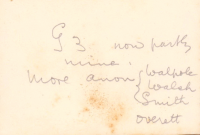 G 3 now partly
mine.
More anon { Walpole
Walsh
Smith
Overett